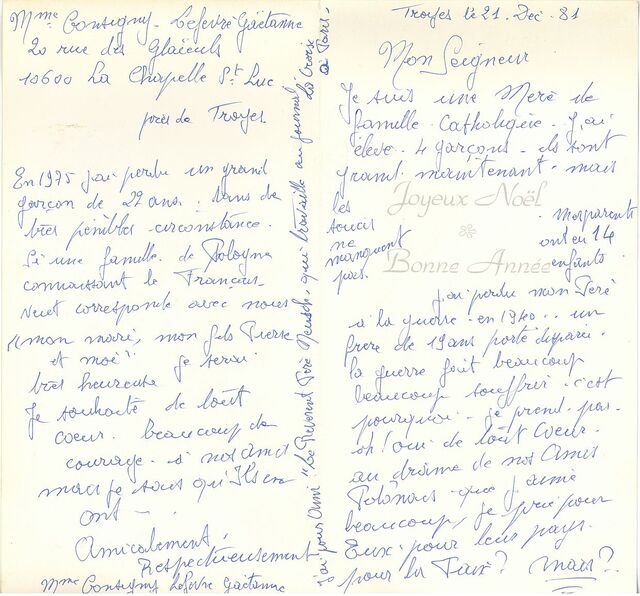 Troyes le 21. Dec. 81
Mon Seigneur
Je suis une Merè de
famille. Catholiqère. J'ai
élevé. 4 garçons. ils sont
grand. maintenant. mais
les
soucis
ne
manquent
pas.
Joyeux Noël
Bonne Année
mes parents
ont eu 14
enfants.
j'ai perdu mon Perè
à la guerre. en 1940.. un
frere de 19 ans porté disparu.
la guerre fait beaucoup
beaucoup souffrir. c'est
pourquoi. je prend. pas.
oh! oui. de tout Coeur.
au drame de nos Amis
Polonais. que j'aimè
beaucoup, je prie pour
Eux. pour leur pays.
pour la Paix? mais?
Mme Consigny. Lefevre Gaëtanne
20 rue des Glaieuls
10600 La Chapelle St Luc
près de Troyes
En 1975 j'ai perdu un grand
garçon de 22 ans. dans de
très pénibles circonstance.
Si une famille. de Pologne
connaissant le Français.
Veut correspondre avec nous
"mon mari, mon fils Pierre
et moi" je serai
très heureuse
Je souhaite de tout
coeur. beaucoup de
courage. à nos amis
mais je sais qu'Ils en
ont -
Amicalement,
Respectueusement
Mme Consigny Lefevre Gaëtanne
j'ai pour Ami "le Reverent Perè, qui travaille au journal.
La Croix
à Paris.